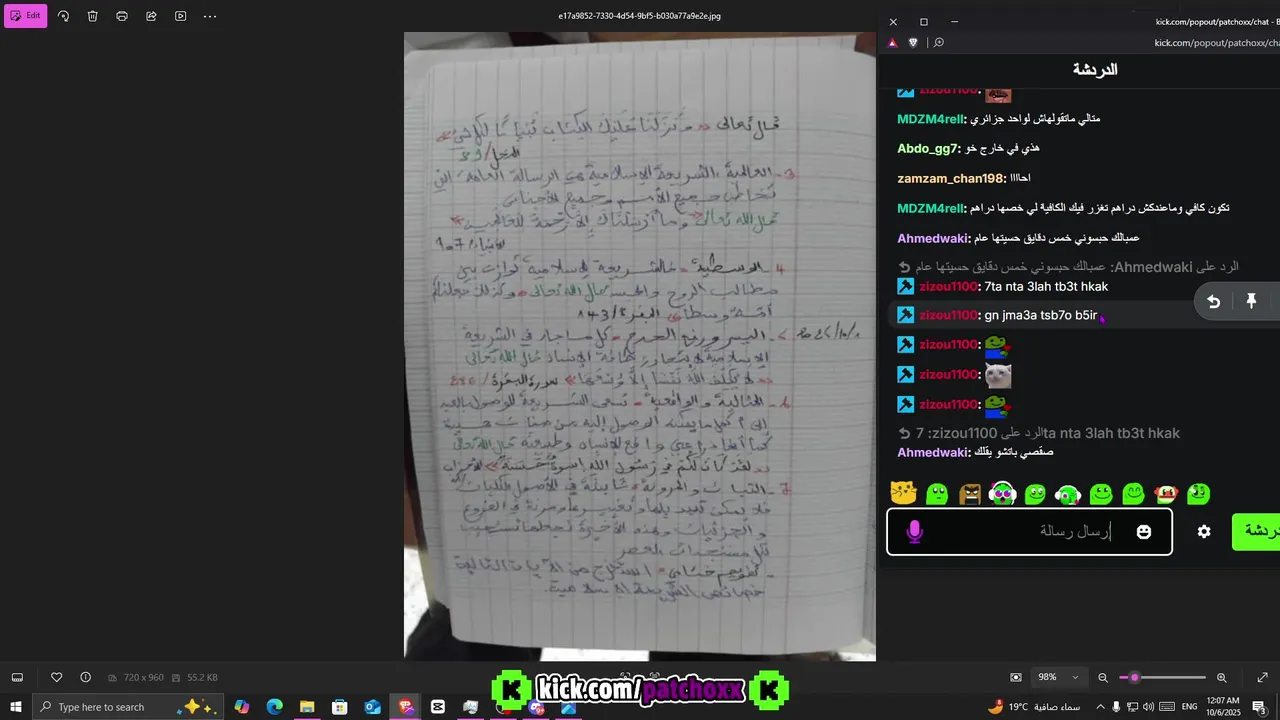 Edit
e17a9852-7330-4d54-9bf5-b030a77a9e2e.jpg
kick.com/popout/patchoxx/chat - B
kick.com/popout/patchoxx/cha
الدردشة
قال تعالى « ونزلنا عليك الكتاب تبيانا لكل شيء »
النحل/89
3- العالمية: الشريعة الإسلامية هي الرسالة العامة التي
تخاطب جميع الأمم وجميع الأجناس
قال الله تعالى « وما أرسلناك إلا رحمة للعالمين »
الأنبياء/107
4- الوسطية: فالشريعة الإسلامية توازن بين
مطالب الروح والجسد قال الله تعالى « وكذلك جعلناكم
أمة وسطا » البقرة/143
اليسر ورفع الحرج: كل ما جاء في الشريعة
الإسلامية لا يتجاوز طاقة الإنسان قال الله تعالى
« لا يكلف الله نفسا إلا وسعها » سورة البقرة/286
6- المثالية والواقعية: تسعى الشريعة للوصول بالعبد
إلى أكمل ما يمكنه الوصول إليه من صفات
كما أنها تراعي واقع الإنسان وطبيعته قال الله تعالى
« لقد كان لكم في رسول الله أسوة حسنة » الأحزاب
7- الثبات والمرونة: ثابتة في الأصول والكليات
فلا يمكن تبديلها أو تغييرها ومرنة في الفروع
والجزئيات وهذه الأخيرة تجعلها تستجيب
لكل مستجدات العصر
- تقويم ختامي: استخرج من الآيات التالية
خصائص الشريعة الإسلامية.
zizou1100:
MDZM4rell: متالي ماتقولهاش لواحد جزائري
Abdo_gg7: هذي في خارج خو
zamzam_chan198: احااااا
MDZM4rell: تكون كافي وماعندكش دراهم تغزر فيك الكافية لي خصها دراهم
Ahmedwaki: عمبالك حبسوني خمس دقايق حسيتها عام
الرد على Ahmedwaki: عمبالك حبسوني خمس دقايق حسيتها عام
zizou1100: 7ta nta 3lah tb3t hkak
zizou1100: gn jma3a tsb7o b5ir
zizou1100:
zizou1100:
zizou1100:
الرد على zizou1100: 7ta nta 3lah tb3t hkak
Ahmedwaki: صقصي باتشو يقلك
إرسال رسالة
دردشة
720 x 960
55.2 KB
K kick.com/patchoxx K
Type here to search
19°C سماء صافية
ENG
12:07 AM
10/6/2025